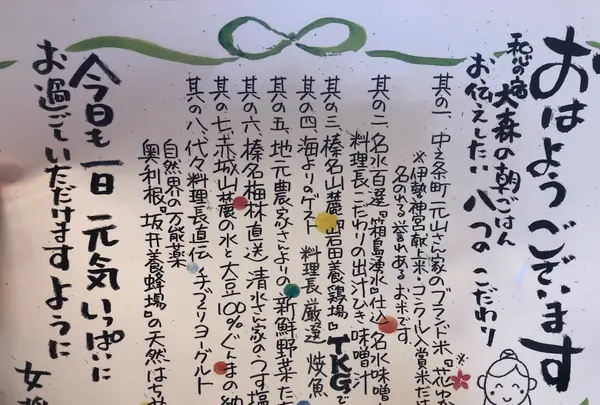 おはようございます
和心の宿 大森の朝ごはん
お伝えしたい 八つの こだわり
其の一、中之条町 元山さん家のブランド米。『花ゆか
※伊勢神宮献上米・コシクル入賞米だけ
名のれる誉れあるお米です
其の二、名水百選『箱島湧水』仕込 名水味噌
料理長こだわりの出汁ひき味噌汁
其の三、榛名山麓『岩田養鶏場』TKGで
其の四、海よりのゲスト 料理長厳選 焼魚
其の五、地元農家さんよりの新鮮野菜た
其の六、榛名梅林直送 清水さん家のつす塩
其の七、赤城山麓の水と大豆100%ぐんまの納
其の八、代々料理長直伝 手づくりヨーグルト
自然界の万能薬
奥利根『坂井養蜂場』の天然はちみ
今日も一日 元気いっぱいに
お過ごしていただけますように
女